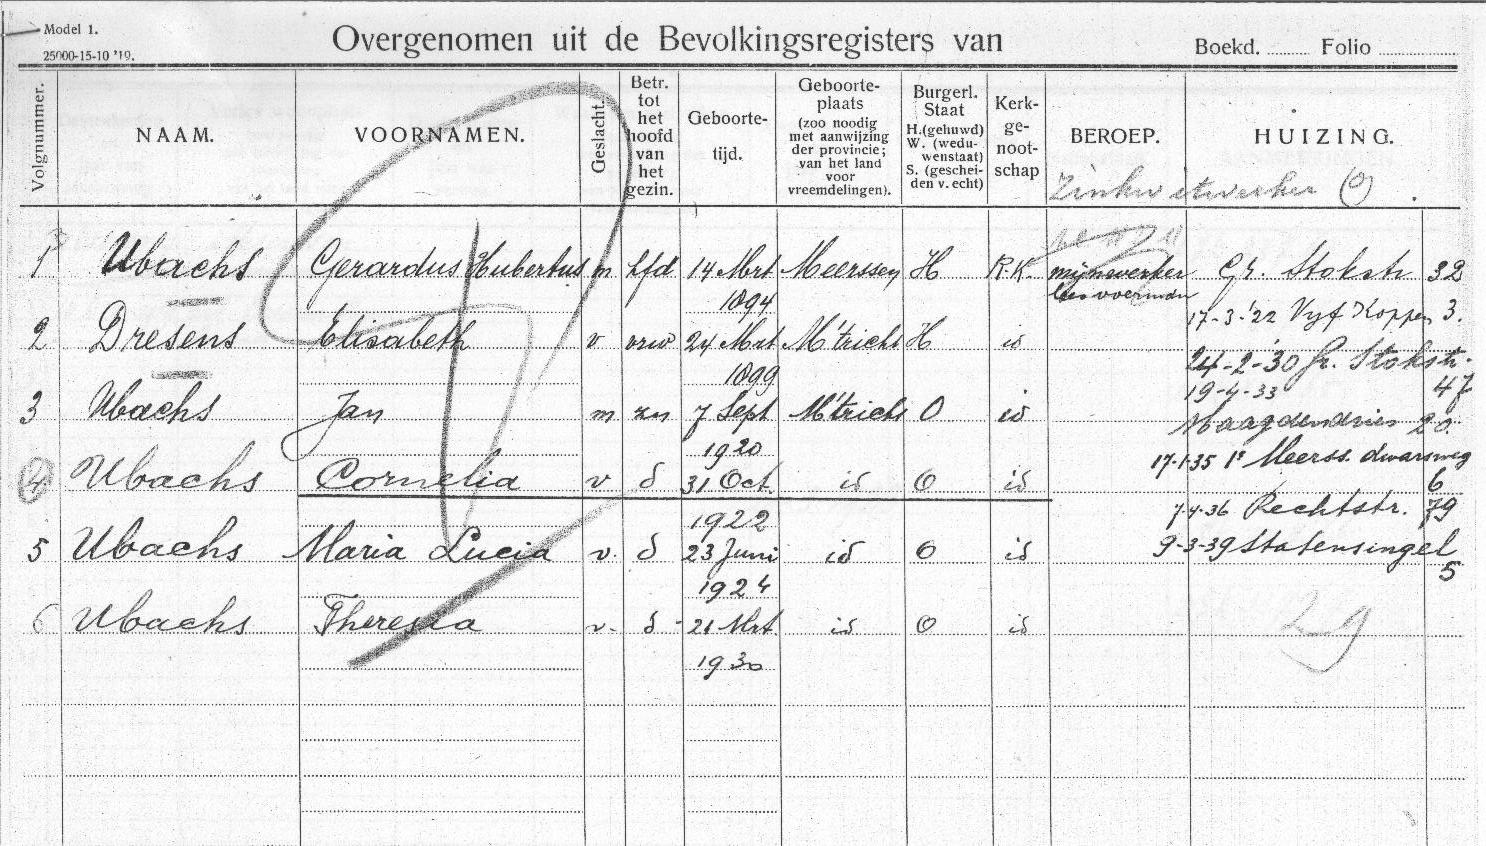 Model 1.
25000-15-10 '19.
Overgenomen uit de Bevolkingsregisters van
Boekd. Folio
Volgnummer.
NAAM.
VOORNAMEN.
Geslacht.
Betr. tot het hoofd van het gezin.
Geboorte-tijd.
Geboorte-plaats (zoo noodig met aanwijzing der provincie; van het land voor vreemdelingen).
Burgerl. Staat H.(gehuwd) W. (wedu-wenstaat) S. (geschei-den v. echt)
Kerk-ge-noot-schap
BEROEP.
HUIZING.
Zinkwitwerker (O)
1 Ubachs Gerardus Hubertus m hfd 14 Mrt 1894 Meerssen H R.K. mijnwerker voerman Gr. Stokstr 32
17-3-'22 Vyf Koppen 3.
2 Dresens Elisabeth v vrw 24 Mrt 1899 M'tricht H id
24-2-'30 Gr. Stokstr. 47
19-4-33
3 Ubachs Jan m zn 7 Sept 1920 M'tricht O id
Maagdendries 20.
17-1-35 1e Meerss. dwarsweg 6
4 Ubachs Cornelia v d 31 Oct. 1922 id O id
7-4-36 Rechtstr. 79
5 Ubachs Maria Lucia v. d 23 Juni 1924 id O id
9-3-39 Statensingel 5
6 Ubachs Theresia v. d 21 Mrt. 1930 id O id
29